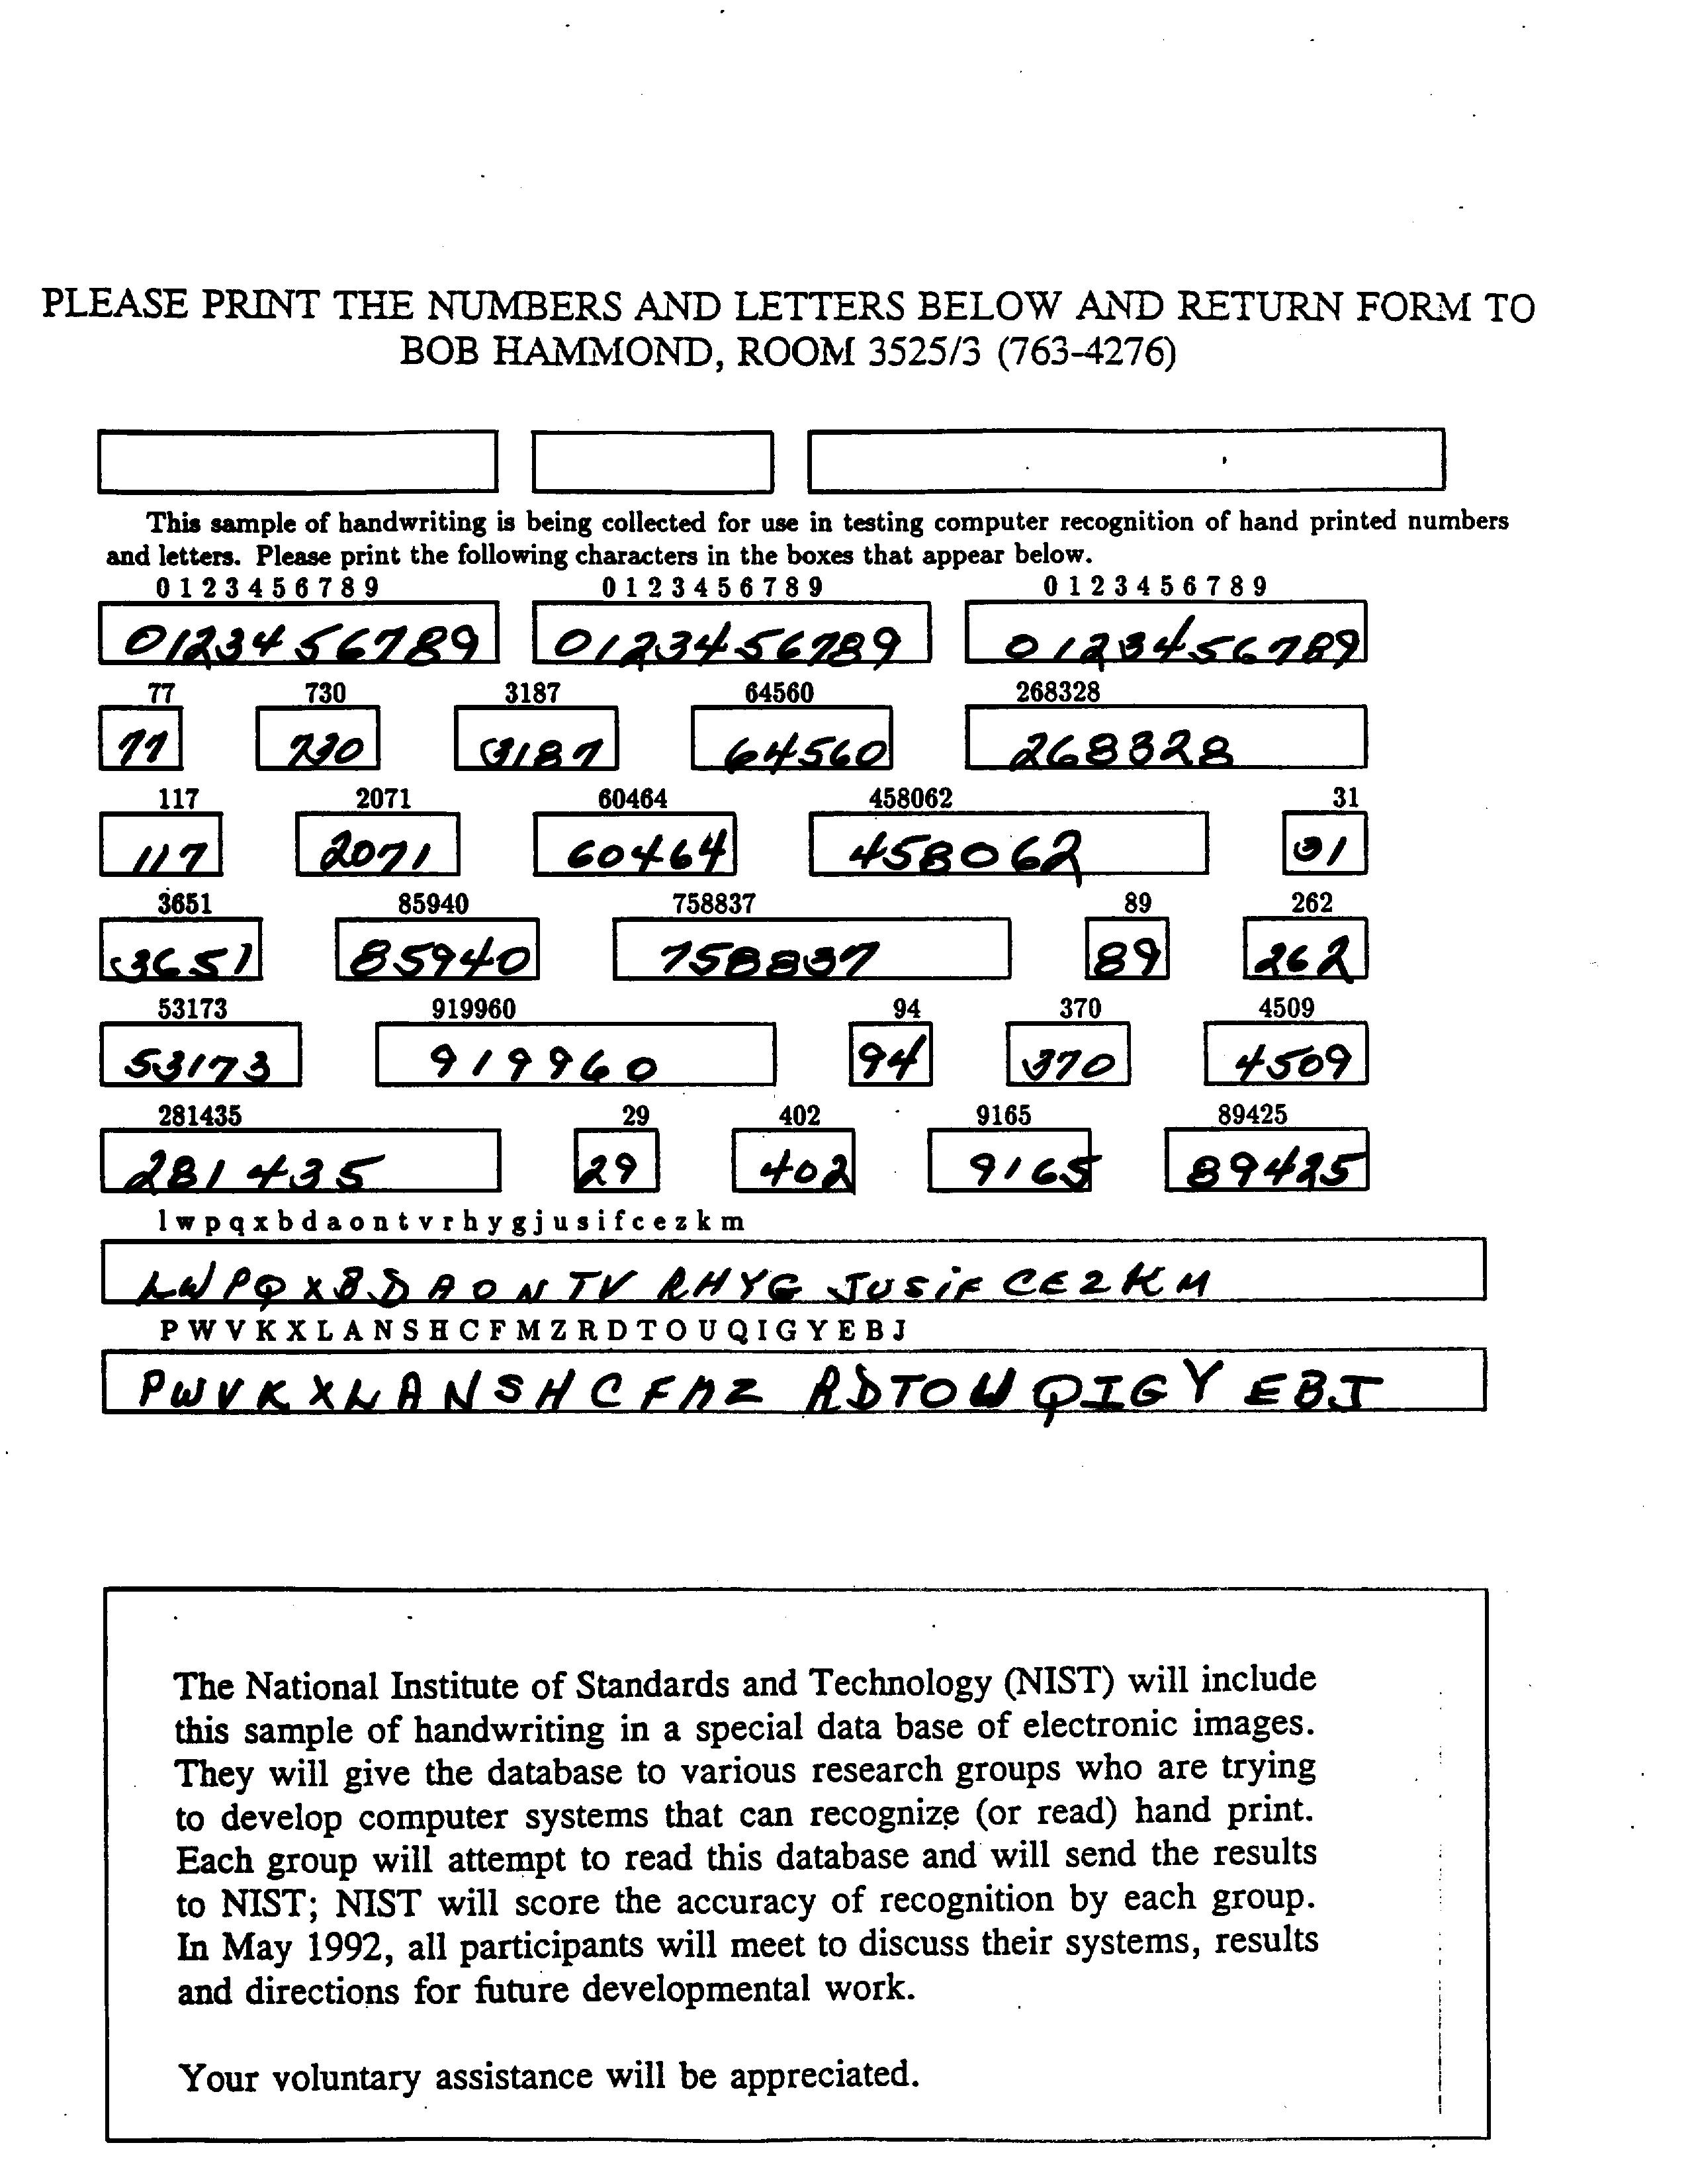 PLEASE PRINT THE NUMBERS AND LETTERS BELOW AND RETURN FORM TO
BOB HAMMOND, ROOM 3525/3 (763-4276)
This sample of handwriting is being collected for use in testing computer recognition of hand printed numbers
and letters. Please print the following characters in the boxes that appear below.
0 1 2 3 4 5 6 7 8 9 0 1 2 3 4 5 6 7 8 9 0 1 2 3 4 5 6 7 8 9
0123456789 0123456789 0123456789
77 730 3187 64560 268328
77 730 3187 64560 268328
117 2071 60464 458062 31
117 2071 60464 458062 31
3651 85940 758837 89 262
3651 85940 758837 89 262
53173 919960 94 370 4509
53173 919960 94 370 4509
281435 29 402 9165 89425
281435 29 402 9165 89425
l w p q x b d a o n t v r h y g j u s i f c e z k m
LWPQXBDAONTVRHYGJUSiFCEZKM
P W V K X L A N S H C F M Z R D T O U Q I G Y E B J
PWVKXLANSHCFMZRDTOUQIGYEBJ
The National Institute of Standards and Technology (NIST) will include
this sample of handwriting in a special data base of electronic images.
They will give the database to various research groups who are trying
to develop computer systems that can recognize (or read) hand print.
Each group will attempt to read this database and will send the results
to NIST; NIST will score the accuracy of recognition by each group.
In May 1992, all participants will meet to discuss their systems, results
and directions for future developmental work.
Your voluntary assistance will be appreciated.